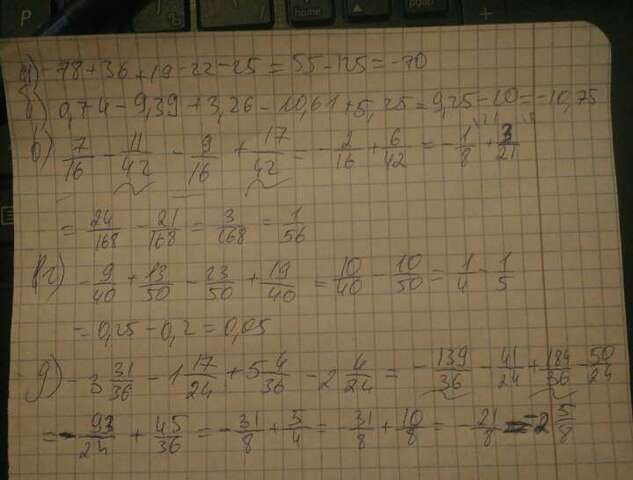 а) -78+36+19-22-25=55-125=-70
б) 0,74-9,39+3,26-10,61+5,25=9,25-20=-10,75
в) 7/16 - 11/42 - 9/16 + 17/42 = -2/16 + 6/42 = -1/8 + 3/21
= 24/168 - 21/168 = 3/168 = 1/56
г) -9/40 + 13/50 - 23/50 + 19/40 = 10/40 - 10/50 = 1/4 - 1/5
= 0,25 - 0,2 = 0,05
д) -3 31/36 - 1 17/24 + 5 4/36 - 2 4/24 = -139/36 - 41/24 + 184/36 - 50/24
= -93/24 + 45/36 = -31/8 + 5/4 = -31/8 + 10/8 = -21/8 = -2 5/8